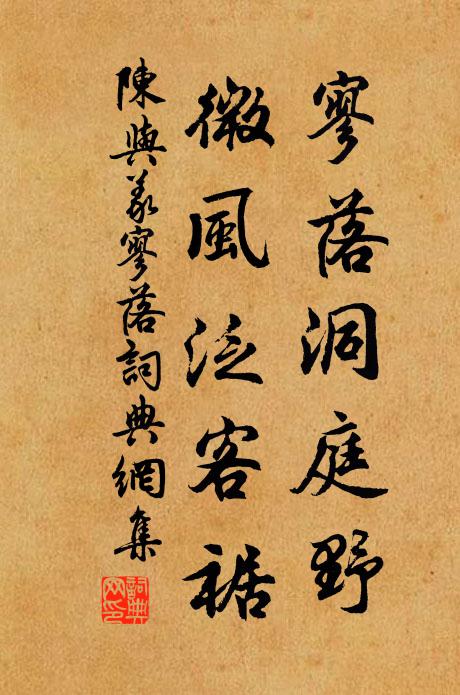 寥落洞庭野
微風泛客裾
陳與義寥落詞典網集
詞典网印